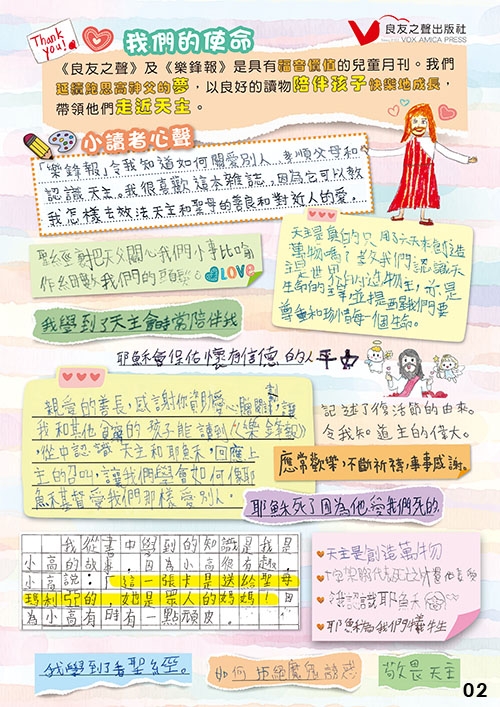 Thank you!
我們的使命
良友之聲出版社
VOX AMICA PRESS
《良友之聲》及《樂鋒報》是具有福音價值的兒童月刊。我們
延續鮑思高神父的夢，以良好的讀物陪伴孩子快樂地成長，
帶領他們走近天主。
小讀者心聲
「樂鋒報」令我知道如何關愛別人、孝順父母和
認識天主。我很喜歡這本雜誌，因為它可以教
我怎樣去效法天主和聖母的善良和對近人的愛。
聖經對天父關心我們小事比喻
作細數我們的頭髮
LOVE
天主是真的只用了六天來創造
萬物嗎？
生命的主宰並提醒我們要
尊重和珍惜每一個生命。
我學到了天主會時常陪伴我
耶穌會保佑懷有信德的人平安
親愛的善長，感謝你資助愛心
我和其他貧窮的孩子能讀到《樂鋒報》
從中認識天主和耶穌，回應上
主的召叫，讓我們學會如何像耶
穌基督愛我們那樣愛別人。
記述了復活節的由來。
令我知道主的偉大。
應常歡樂，不斷祈禱，事事感謝。
耶穌死了因為他為我們死的
我從書中學到的知識是我是
小高的故事，因為小高很有趣，
小高說：「這一張卡是送給聖母
瑪利亞的，她是眾人的媽媽！」因
為小高有時有一點頑皮。
天主是創造萬物
認識耶穌
耶穌為我們犧牲
我學到了看聖經。
如何拒絕魔鬼誘惑
敬畏天主
02